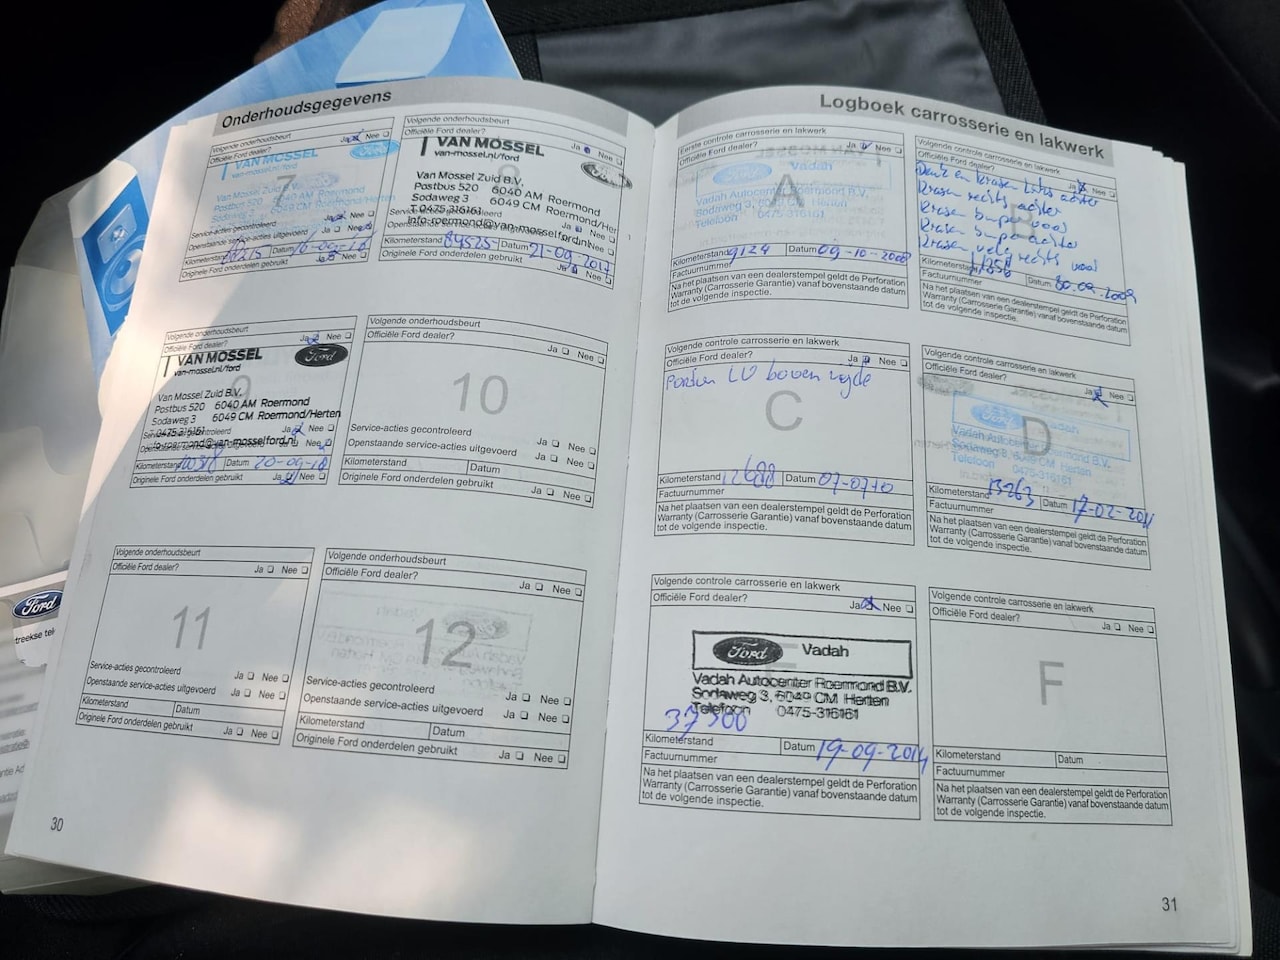 Onderhoudsgegevens
Volgende onderhoudsbeurt
Officiële Ford dealer? Ja Nee
7
VAN MOSSEL
van-mossel.nl/ford
Van Mossel Zuid B.V.
Postbus 520 6040 AM Roermond
Sodaweg 3
Service-acties gecontroleerd Ja Nee
Openstaande service-acties uitgevoerd Ja Nee
Kilometerstand Datum
Originele Ford onderdelen gebruikt Ja Nee
Volgende onderhoudsbeurt
Officiële Ford dealer? Ja Nee
VAN MOSSEL
van-mossel.nl/ford
Ford
Van Mossel Zuid B.V.
Postbus 520 6040 AM Roermond
Sodaweg 3 6049 CM Roermond/Herten
T. 0475-316161
info-roermond@van-mosselford.nl
Kilometerstand 89525 Datum 21-09-2017
Originele Ford onderdelen gebruikt Ja Nee
Volgende onderhoudsbeurt
Officiële Ford dealer? Ja Nee
9
VAN MOSSEL
van-mossel.nl/ford
Ford
Van Mossel Zuid B.V.
Postbus 520 6040 AM Roermond
Sodaweg 3 6049 CM Roermond/Herten
0475-316161
Ja Nee
roermond@van-mosselford.nl
Kilometerstand Datum 20-09-18
Originele Ford onderdelen gebruikt Ja Nee
Volgende onderhoudsbeurt
Officiële Ford dealer?
Ja Nee
10
Service-acties gecontroleerd Ja Nee
Openstaande service-acties uitgevoerd Ja Nee
Kilometerstand Datum
Originele Ford onderdelen gebruikt Ja Nee
Volgende onderhoudsbeurt
Officiële Ford dealer? Ja Nee
11
Service-acties gecontroleerd Ja Nee
Openstaande service-acties uitgevoerd Ja Nee
Kilometerstand Datum
Originele Ford onderdelen gebruikt Ja Nee
Volgende onderhoudsbeurt
Officiële Ford dealer? Ja Nee
12
Service-acties gecontroleerd Ja Nee
Openstaande service-acties uitgevoerd Ja Nee
Kilometerstand Datum
Originele Ford onderdelen gebruikt Ja Nee
30
Logboek carrosserie en lakwerk
Eerste controle carrosserie en lakwerk
Officiële Ford dealer? Ja Nee
A
Ford Vadah
Vadah Autocenter Roermond B.V.
Sodaweg 3, 6049 CM Herten
Telefoon 0475-316161
Kilometerstand 9124 Datum 09-10-2008
Factuurnummer
Na het plaatsen van een dealerstempel geldt de Perforation
Warranty (Carrosserie Garantie) vanaf bovenstaande datum
tot de volgende inspectie.
Volgende controle carrosserie en lakwerk
Officiële Ford dealer? Ja Nee
B
Deuk en krassen links achter
Krassen rechts achter
Krassen bumper voor
Krassen bumper achter
Krassen velg rechts voor
Kilometerstand 11356 Datum 30.09.2009
Factuurnummer
Na het plaatsen van een dealerstempel geldt de Perforation
Warranty (Carrosserie Garantie) vanaf bovenstaande datum
tot de volgende inspectie.
Volgende controle carrosserie en lakwerk
Officiële Ford dealer? Ja Nee
LV boven
C
Kilometerstand 12688 Datum 07-07-10
Factuurnummer
Na het plaatsen van een dealerstempel geldt de Perforation
Warranty (Carrosserie Garantie) vanaf bovenstaande datum
tot de volgende inspectie.
Volgende controle carrosserie en lakwerk
Officiële Ford dealer? Ja Nee
D
Ford Vadah
Vadah Autocenter Roermond B.V.
Sodaweg 3, 6049 CM Herten
Telefoon 0475-316161
Kilometerstand 13263 Datum 17-02-2011
Factuurnummer
Na het plaatsen van een dealerstempel geldt de Perforation
Warranty (Carrosserie Garantie) vanaf bovenstaande datum
tot de volgende inspectie.
Volgende controle carrosserie en lakwerk
Officiële Ford dealer? Ja Nee
Ford Vadah
Vadah Autocenter Roermond B.V.
Sodaweg 3, 6049 CM Herten
Telefoon 0475-316161
37300
Kilometerstand Datum 19-09-2014
Factuurnummer
Na het plaatsen van een dealerstempel geldt de Perforation
Warranty (Carrosserie Garantie) vanaf bovenstaande datum
tot de volgende inspectie.
Volgende controle carrosserie en lakwerk
Officiële Ford dealer? Ja Nee
F
Kilometerstand Datum
Factuurnummer
Na het plaatsen van een dealerstempel geldt de Perforation
Warranty (Carrosserie Garantie) vanaf bovenstaande datum
tot de volgende inspectie.
31
Ford